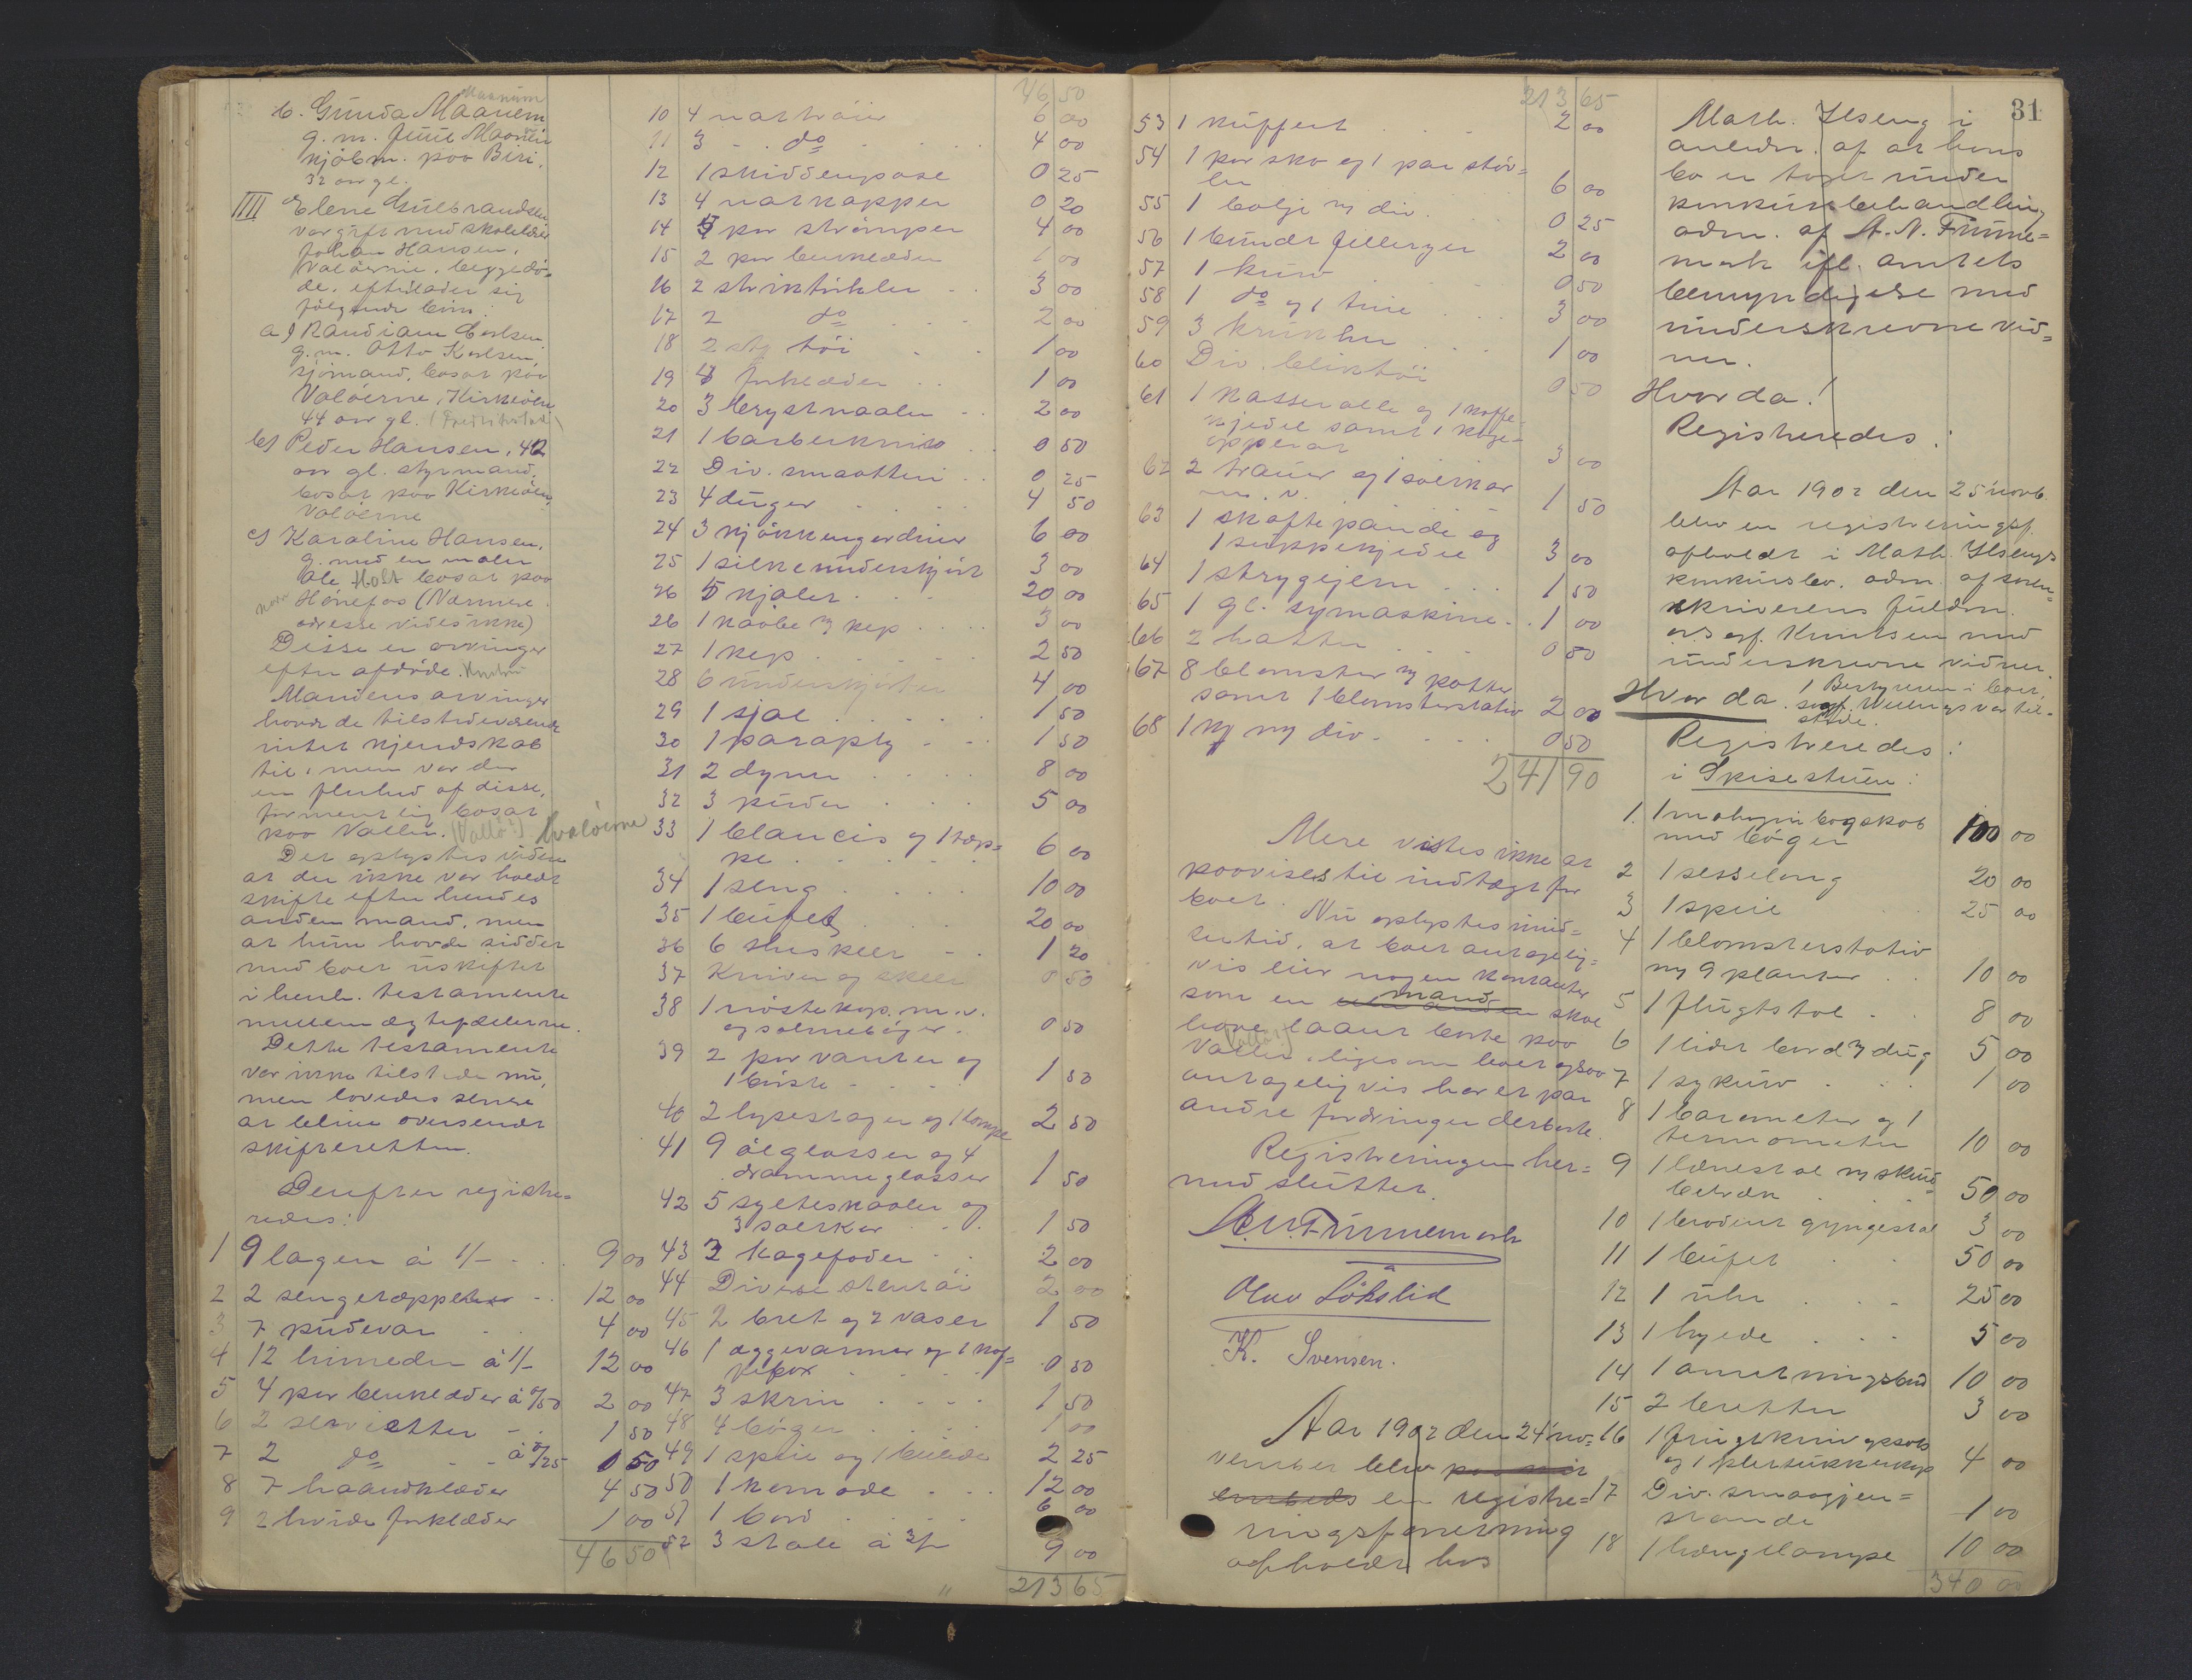 b. Gunda Maanem
Maanum
g. m. Juul Maanem
kjøbm. paa Biri,
32 aar gl.
IIII Elene Gulbrandsen
var gift med skolelærer
Johan Hansen,
Valøerne, begge dø-
de, efterlader sig
følgende børn:
a) Randiane Carlsen
g. m. Otto Karlsen,
sjømand, bosat paa
Valøerne, Kirkeøen
44 aar gl. (Fredrikstad)
b) Peder Hansen, 42
aar gl. styrmand,
bosat paa Kirkeøen,
Valøerne
c) Karoline Hansen,
g. med en maler
Ole Holt bosat paa
Hønefos (Nærmere
adresse vides ikke)
Disse er arvinger
efter afdøde.
Mandens arvinger
havde de tilstedeværende
intet kjendskab
til, men var der
en flerhed af disse,
formentlig bosat
paa Vallø. (Vallø?) Hvaløerne
Det oplystes videre
at der ikke var holdt
skifte efter hendes
anden mand, men
at hun havde siddet
med boet uskiftet
i henh. testamente
mellem ægtefællerne.
Dette testamente
var ikke tilstede nu,
men lovedes senere
at blive oversendt
skifteretten.
Derefter registre-
redes:
1 9 lagen à 1/- 9 00
2 2 sengetæpper 12 00
3 7 pudevar 4 00
4 12 linneder à 1/- 12 00
5 4 par benklæder à 0/50 2 00
6 2 servietter 1 50
7 2 do à 0/25 0 50
8 7 haandklæder 4 50
9 2 hvide forklæder 1 00
46 50
46 50
10 4 nattrøier 6 00
11 3 do 4 00
12 1 skiddenpose 0 25
13 4 natkapper 0 20
14 8 par strømper 4 00
15 2 par benklæder 1 00
16 2 strikkekler 3 00
17 2 do 2 00
18 2 stk tøi 1 00
19 4 forklæder 1 00
20 3 brystnaaler 2 00
21 1 barberkniv 0 50
22 Div. smaatteri 0 25
23 4 duger 4 50
24 3 kjøkkengardiner 6 00
25 1 silkeunderskjørt 3 00
26 5 kjoler 20 00
26 1 kaabe og kep 3 00
27 1 kep 2 50
28 6 underskjørter 4 00
29 1 sjal 1 50
30 1 paraply 1 50
31 2 dyner 8 00
32 3 puder 5 00
33 1 blancis og 1 tæp=
pe 6 00
34 1 seng 10 00
35 1 bufet 20 00
36 6 theskeer 1 20
37 Kniver og skeer 0 50
38 1 nøstekop m. v.
og salmebøger 0 50
39 2 par vanter og
1 børste 1 50
40 2 lysestager og 1 lampe 2 50
41 9 ølglasser og 4
drammeglasser 1 50
42 5 sylteskaaler og
3 saltkar 1 50
43 2 kagefader 2 00
44 Diverse stentøi 2 00
45 2 bret og 2 vaser 1 50
46 1 æggevarmer og 1 kaf=
febox 0 50
47 3 skrin 1 50
48 4 bøger 1 00
49 1 speil og 1 billede 2 25
50 1 komode 12 00
51 1 bord 6 00
52 3 stole à 3/- 9 00
213 65
213 65
53 1 kuffert 2 00
54 1 par sko og 1 par støv=
ler 6 00
55 1 balje og div. 0 25
56 1 bundt fillerger 2 00
57 1 kurv 0 50
58 1 do og 1 tine 3 00
59 3 krukker 1 00
60 Div. bliktøi 0 50
61 1 kasserolle og 1 kaffe-
kjedel samt 1 koge-
apparat 3 00
62 2 trauer og 1 soelkar
m. v. 1 50
63 1 skaftepande og
1 suppekjedel 3 00
64 1 strygejern 1 50
65 1 gl. symaskine 1 00
66 2 hatter 0 50
67 8 blomster og potter
samt 1 blomsterstativ 2 00
68 1 og div. 0 50
241 90
Mere vistes ikke at
paavises til indtægt for
boet. Nu oplystes imid=
lertid, at boet antagelig=
vis eier nogen kontanter
som en mand skal
have laant borte paa
Vallø. (Vallø?) ligesom boet ogsaa
antageligvis har et par
andre fordringer derborte.
Registreringen her=
med sluttet.
A. N. Finnemark
Olav Løkslid
K. Svensen.
Aar 1902 den 24' no=
vember blev paa mit
embeds en registre=
ringsforretning
afholdt hos
31
Math. Ilseng i
anledn. af at hans
bo er taget under
konkursbehandling
adm. af A. N. Finne=
mark ifl. amtets
bemyndigelse med
underskrevne vid=
ner.
Hvorda!
Registreredes:
Aar 1902 den 25' novb.
blev en registreringsf.
afholdt i Math. Ilsengs
konkursbo, adm. af soren=
skriverens fuldm.
Knutsen med
underskrevne vidner.
Hvor da. Bestyreren i boet,
sagf. Wellings var til-
stede.
Registreredes:
i Spisestuen:
1. 1 mahogni bogskab
med bøger 100 00
2 1 sesselong 20 00
3 1 speil 25 00
4 1 blomsterstativ
og 9 planter 10 00
5 1 flugtstol 8 00
6 1 lidet bord og dug 5 00
7 1 sykurv 1 00
8 1 barometer og 1
termometer 10 00
9 1 lænestol og skind-
betræk 50 00
10 1 broderet gyngestol 3 00
11 1 bufet 50 00
12 1 uhr 25 00
13 1 hylde 5 00
14 1 anretningsbord 10 00
15 2 bretter 3 00
16 1 frugtknivopsats
og 1 4 00
17 Div. smaagjen=
stande 1 00
18 1 hængelampe 10 00
340 00